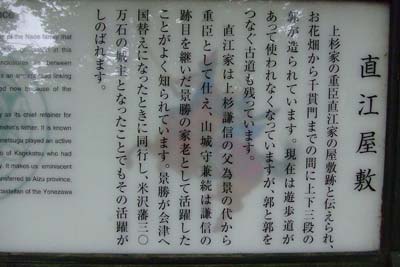 直江屋敷
上杉家の重臣直江家の屋敷跡と伝えられ、
お花畑から千貫門までの間に上下三段の
郭が造られています。現在は遊歩道が
あって使われなくなっていますが、郭と郭を
つなぐ古道も残っています。
直江家は上杉謙信の父為景の代から
重臣として仕え、山城守兼続は謙信の
跡目を継いだ景勝の家老として活躍した
ことがよく知られています。景勝が会津へ
国替えになったときに同行し、米沢藩三〇
万石の城主となったことでもその活躍が
しのばれます。
of the Naoe family that
between
an ancient road linking
used now because of the
as its chief retainer for
father. It is known
played an active
of Kagekatsu, who had
It makes us reminiscent
transferred to Aizu province,
castellan of the Yonezawa